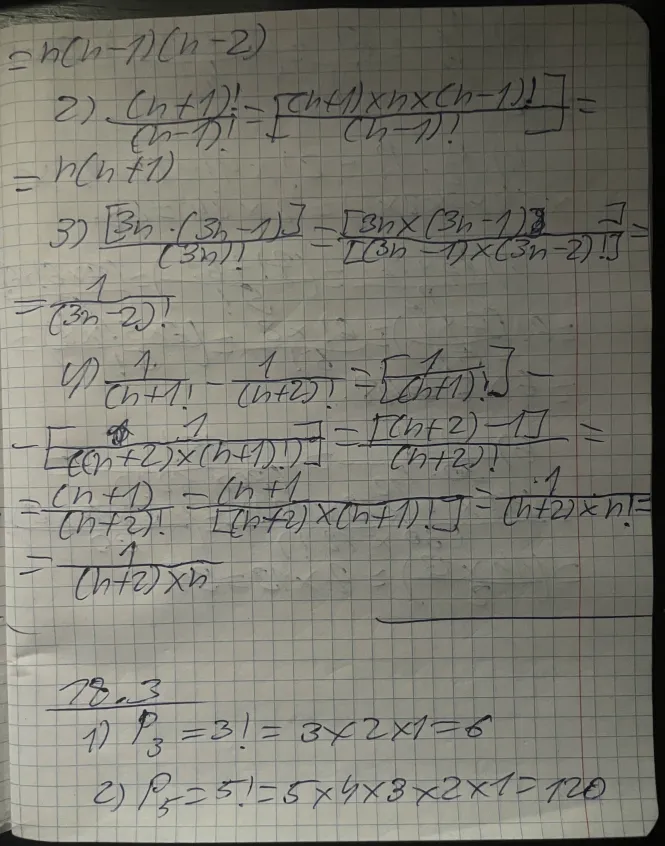 = n(n-1)(n-2)
2) (n+1)!/(n-1)! = [(n+1)×n×(n-1)!]/(n-1)! =
= n(n+1)
3) [3n·(3n-1)]/(3n)! = [3n×(3n-1)]/[(3n-1)×(3n-2)!] =
= 1/(3n-2)!
4) 1/(n+1)! - 1/(n+2)! = [1/(n+1)!] -
- [1/((n+2)×(n+1)!)] = [(n+2)-1]/(n+2)! =
= (n+1)/(n+2)! = (n+1/[(n+2)×(n+1)!] = 1/(n+2)×n! =
= 1/(n+2)×n
18.3
1) P₃ = 3! = 3×2×1 = 6
2) P₅ = 5! = 5×4×3×2×1 = 120